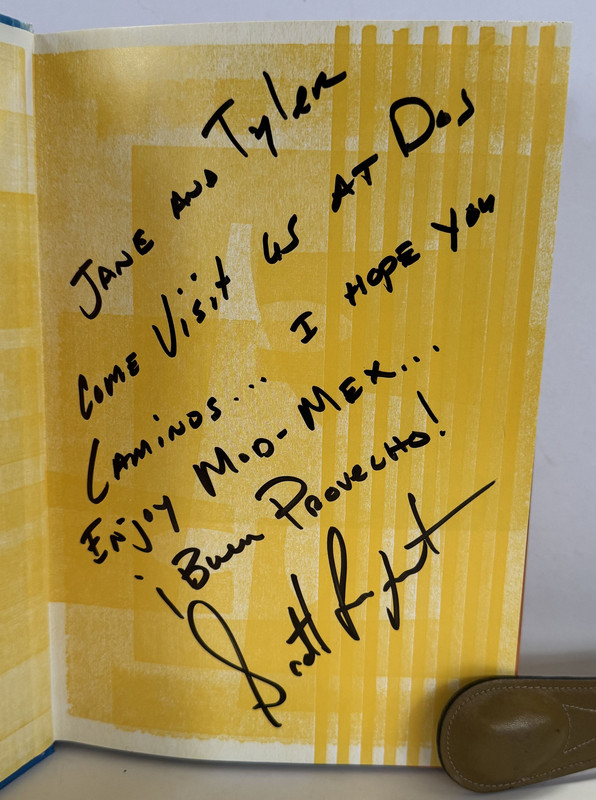 JANE AND Tyler
COME Visit us AT Dos
CAMINOS... I HOPE YOU
ENJOY MOD-MEX...
¡Buen PROVECHO!
Scott